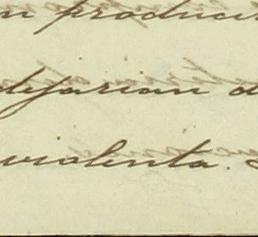 n produci
dejarian d
violenta.